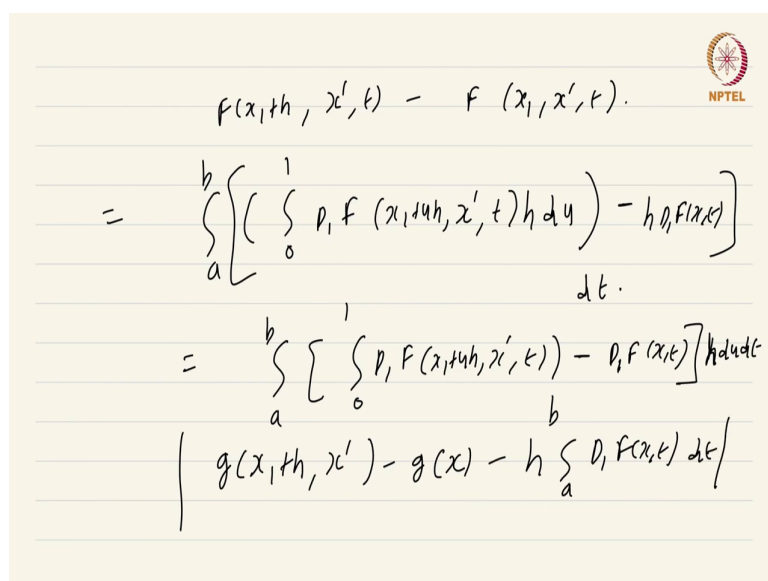 NPTEL
F(x₁+h, x', t) - F(x₁, x', t).
= ∫ₐᵇ [ ( ∫₀¹ D₁ F (x₁+uh, x', t) h du ) - h D₁F(x,t) ]
dt.
= ∫ₐᵇ [ ∫₀¹ D₁ F (x₁+uh, x', t)) - D₁F (x,t) ] h du dt
| g(x₁+h, x') - g(x) - h ∫ₐᵇ D₁ F(x,t) dt |